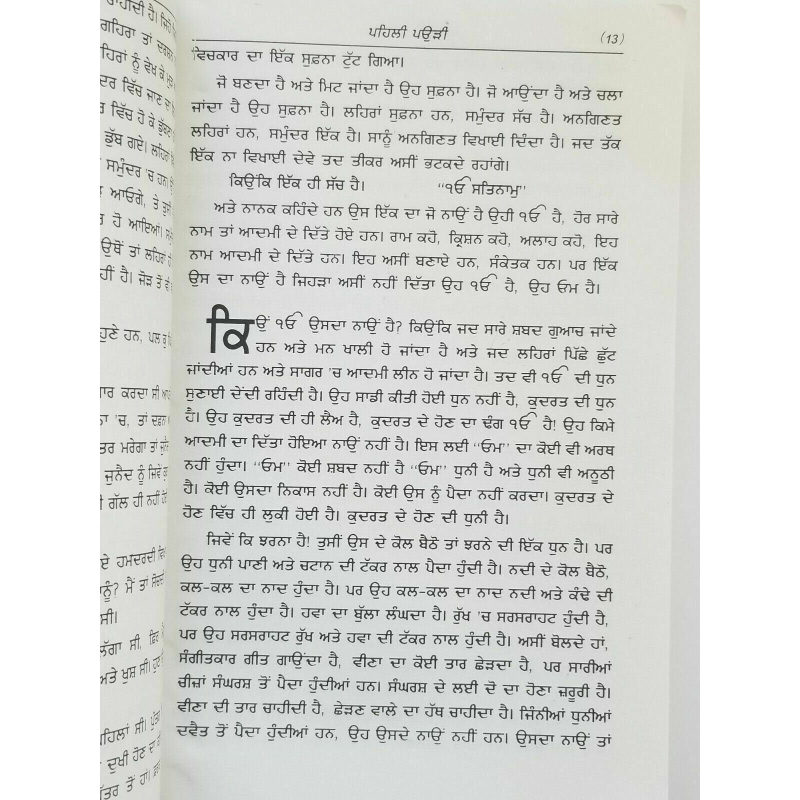 ਚਾਹੀਦੀ ਹੈ। ਜਿਹੋ
ਗਹਿਰਾ ਤਾਂ ਦਰਸ਼ਨ
ਹਿਰਾਂ ਨੂੰ ਵੇਖ ਕੇ
ਦਰ ਵਿੱਚ ਜਾਣ ਦਾ
ਰ ਵਿੱਚ ਹੋ ਕੇ ਡੁੱਬਣਾ
ਡੁੱਬ ਗਏ। ਲਹਿਰਾਂ
ਸਮੁੰਦਰ 'ਚ ਹਨ।
ਆਓਗੇ, ਤੇ ਤੁਸੀਂ
ਰ ਹੋ ਆਇਆਂ।
ਉਥੋਂ ਤਾਂ ਲਹਿਰਾਂ
ਹੀਂ ਹੈ। ਜੋੜ ਤੋਂ
ਹੁਣੇ ਹਨ, ਪਲ
ਾਰ ਕਰਦਾ ਸੀ
ਨਾ 'ਚ, ਤਾਂ ਦਫ਼ਨਾ
ਤਰ ਮਰੇਗਾ ਤਾਂ
ਜੁਨੈਦ ਨੂੰ ਜਿਵੇਂ
ੀ ਗੱਲ ਹੀ ਨਹੀਂ
ਏ ਹਮਦਰਦੀ
ਨੂੰ? ਮੈਂ ਤਾਂ ਸੋਚਦੀ
ਸੀ।
ਲੱਗਾ ਸੀ, ਫ਼ਿਰ
ਅਤੇ ਖੁਸ਼ ਸੀ।
ਪਹਿਲਾਂ ਸੀ।
ਦੁਖੀ ਹੋਣ ਦਾ
ੱਤਰ ਤੋਂ ਹਾਂ।
ਪਹਿਲੀ ਪਉੜੀ (13)
ਵਿਚਕਾਰ ਦਾ ਇੱਕ ਸੁਫ਼ਨਾ ਟੁੱਟ ਗਿਆ।
ਜੋ ਬਣਦਾ ਹੈ ਅਤੇ ਮਿਟ ਜਾਂਦਾ ਹੈ ਉਹ ਸੁਫ਼ਨਾ ਹੈ। ਜੋ ਆਉਂਦਾ ਹੈ ਅਤੇ ਚਲਾ
ਜਾਂਦਾ ਹੈ ਉਹ ਸੁਫ਼ਨਾ ਹੈ। ਲਹਿਰਾਂ ਸੁਫ਼ਨਾ ਹਨ, ਸਮੁੰਦਰ ਸੱਚ ਹੈ। ਅਨਗਿਣਤ
ਲਹਿਰਾਂ ਹਨ, ਸਮੁੰਦਰ ਇੱਕ ਹੈ। ਸਾਨੂੰ ਅਨਗਿਣਤ ਵਿਖਾਈ ਦਿੰਦਾ ਹੈ। ਜਦ ਤੱਕ
ਇੱਕ ਨਾ ਵਿਖਾਈ ਦੇਵੇ ਤਦ ਤੀਕਰ ਅਸੀਂ ਭਟਕਦੇ ਰਹਾਂਗੇ।
ਕਿਉਂਕਿ ਇੱਕ ਹੀ ਸੱਚ ਹੈ। “ੴ ਸਤਿਨਾਮੁ”
ਅਤੇ ਨਾਨਕ ਕਹਿੰਦੇ ਹਨ ਉਸ ਇੱਕ ਦਾ ਜੋ ਨਾਉਂ ਹੈ ਉਹੀ ੴ ਹੈ, ਹੋਰ ਸਾਰੇ
ਨਾਮ ਤਾਂ ਆਦਮੀ ਦੇ ਦਿੱਤੇ ਹੋਏ ਹਨ। ਰਾਮ ਕਹੋ, ਕ੍ਰਿਸ਼ਨ ਕਹੋ, ਅਲਾਹ ਕਹੋ, ਇਹ
ਨਾਮ ਆਦਮੀ ਦੇ ਦਿੱਤੇ ਹਨ। ਇਹ ਅਸੀਂ ਬਣਾਏ ਹਨ, ਸੰਕੇਤਕ ਹਨ। ਪਰ ਇੱਕ
ਉਸ ਦਾ ਨਾਉਂ ਹੈ ਜਿਹੜਾ ਅਸੀਂ ਨਹੀਂ ਦਿੱਤਾ ਉਹ ੴ ਹੈ, ਉਹ ਓਮ ਹੈ।
ਕਿਉਂ ੴ ਉਸਦਾ ਨਾਉਂ ਹੈ? ਕਿਉਂਕਿ ਜਦ ਸਾਰੇ ਸ਼ਬਦ ਗੁਆਚ ਜਾਂਦੇ
ਹਨ ਅਤੇ ਮਨ ਖਾਲੀ ਹੋ ਜਾਂਦਾ ਹੈ ਅਤੇ ਜਦ ਲਹਿਰਾਂ ਪਿੱਛੇ ਛੁੱਟ
ਜਾਂਦੀਆਂ ਹਨ ਅਤੇ ਸਾਗਰ 'ਚ ਆਦਮੀ ਲੀਨ ਹੋ ਜਾਂਦਾ ਹੈ। ਤਦ ਵੀ ੴ ਦੀ ਧੁਨ
ਸੁਣਾਈ ਦੇਂਦੀ ਰਹਿੰਦੀ ਹੈ। ਉਹ ਸਾਡੀ ਕੀਤੀ ਹੋਈ ਧੁਨ ਨਹੀਂ ਹੈ, ਕੁਦਰਤ ਦੀ ਧੁਨ
ਹੈ। ਉਹ ਕੁਦਰਤ ਦੀ ਹੀ ਲੈਅ ਹੈ, ਕੁਦਰਤ ਦੇ ਹੋਣ ਦਾ ਢੰਗ ੴ ਹੈ! ਉਹ ਕਿਸੇ
ਆਦਮੀ ਦਾ ਦਿੱਤਾ ਹੋਇਆ ਨਾਉਂ ਨਹੀਂ ਹੈ। ਇਸ ਲਈ “ਓਮ” ਦਾ ਕੋਈ ਵੀ ਅਰਥ
ਨਹੀਂ ਹੁੰਦਾ। “ਓਮ” ਕੋਈ ਸ਼ਬਦ ਨਹੀਂ ਹੈ “ਓਮ” ਧੁਨੀ ਹੈ ਅਤੇ ਧੁਨੀ ਵੀ ਅਨੂਠੀ
ਹੈ। ਕੋਈ ਉਸਦਾ ਨਿਕਾਸ ਨਹੀਂ ਹੈ। ਕੋਈ ਉਸ ਨੂੰ ਪੈਦਾ ਨਹੀਂ ਕਰਦਾ। ਕੁਦਰਤ ਦੇ
ਹੋਣ ਵਿੱਚ ਹੀ ਲੁਕੀ ਹੋਈ ਹੈ। ਕੁਦਰਤ ਦੇ ਹੋਣ ਦੀ ਧੁਨੀ ਹੈ।
ਜਿਵੇਂ ਕਿ ਝਰਨਾ ਹੈ! ਤੁਸੀਂ ਉਸ ਦੇ ਕੋਲ ਬੈਠੋ ਤਾਂ ਝਰਨੇ ਦੀ ਇੱਕ ਧੁਨ ਹੈ। ਪਰ
ਉਹ ਧੁਨੀ ਪਾਣੀ ਅਤੇ ਚਟਾਨ ਦੀ ਟੱਕਰ ਨਾਲ ਪੈਦਾ ਹੁੰਦੀ ਹੈ। ਨਦੀ ਦੇ ਕੋਲ ਬੈਠੋ,
ਕਲ-ਕਲ ਦਾ ਨਾਦ ਹੁੰਦਾ ਹੈ। ਪਰ ਉਹ ਕਲ-ਕਲ ਦਾ ਨਾਦ ਨਦੀ ਅਤੇ ਕੰਢੇ ਦੀ
ਟੱਕਰ ਨਾਲ ਹੁੰਦਾ ਹੈ। ਹਵਾ ਦਾ ਬੁੱਲਾ ਲੰਘਦਾ ਹੈ। ਰੁੱਖ 'ਚ ਸਰਸਰਾਹਟ ਹੁੰਦੀ ਹੈ,
ਪਰ ਉਹ ਸਰਸਰਾਹਟ ਰੁੱਖ ਅਤੇ ਹਵਾ ਦੀ ਟੱਕਰ ਨਾਲ ਹੁੰਦੀ ਹੈ। ਅਸੀਂ ਬੋਲਦੇ ਹਾਂ,
ਸੰਗੀਤਕਾਰ ਗੀਤ ਗਾਉਂਦਾ ਹੈ, ਵੀਣਾ ਦਾ ਕੋਈ ਤਾਰ ਛੇੜਦਾ ਹੈ, ਪਰ ਸਾਰੀਆਂ
ਚੀਜ਼ਾਂ ਸੰਘਰਸ਼ ਤੋਂ ਪੈਦਾ ਹੁੰਦੀਆਂ ਹਨ। ਸੰਘਰਸ਼ ਦੇ ਲਈ ਦੋ ਦਾ ਹੋਣਾ ਜ਼ਰੂਰੀ ਹੈ।
ਵੀਣਾ ਦੀ ਤਾਰ ਚਾਹੀਦੀ ਹੈ, ਛੇੜਣ ਵਾਲੇ ਦਾ ਹੱਥ ਚਾਹੀਦਾ ਹੈ। ਜਿੰਨੀਆਂ ਧੁਨੀਆਂ
ਦਵੈਤ ਤੋਂ ਪੈਦਾ ਹੁੰਦੀਆਂ ਹਨ, ਉਹ ਉਸਦੇ ਨਾਉਂ ਨਹੀਂ ਹਨ। ਉਸਦਾ ਨਾਉਂ ਤਾਂ